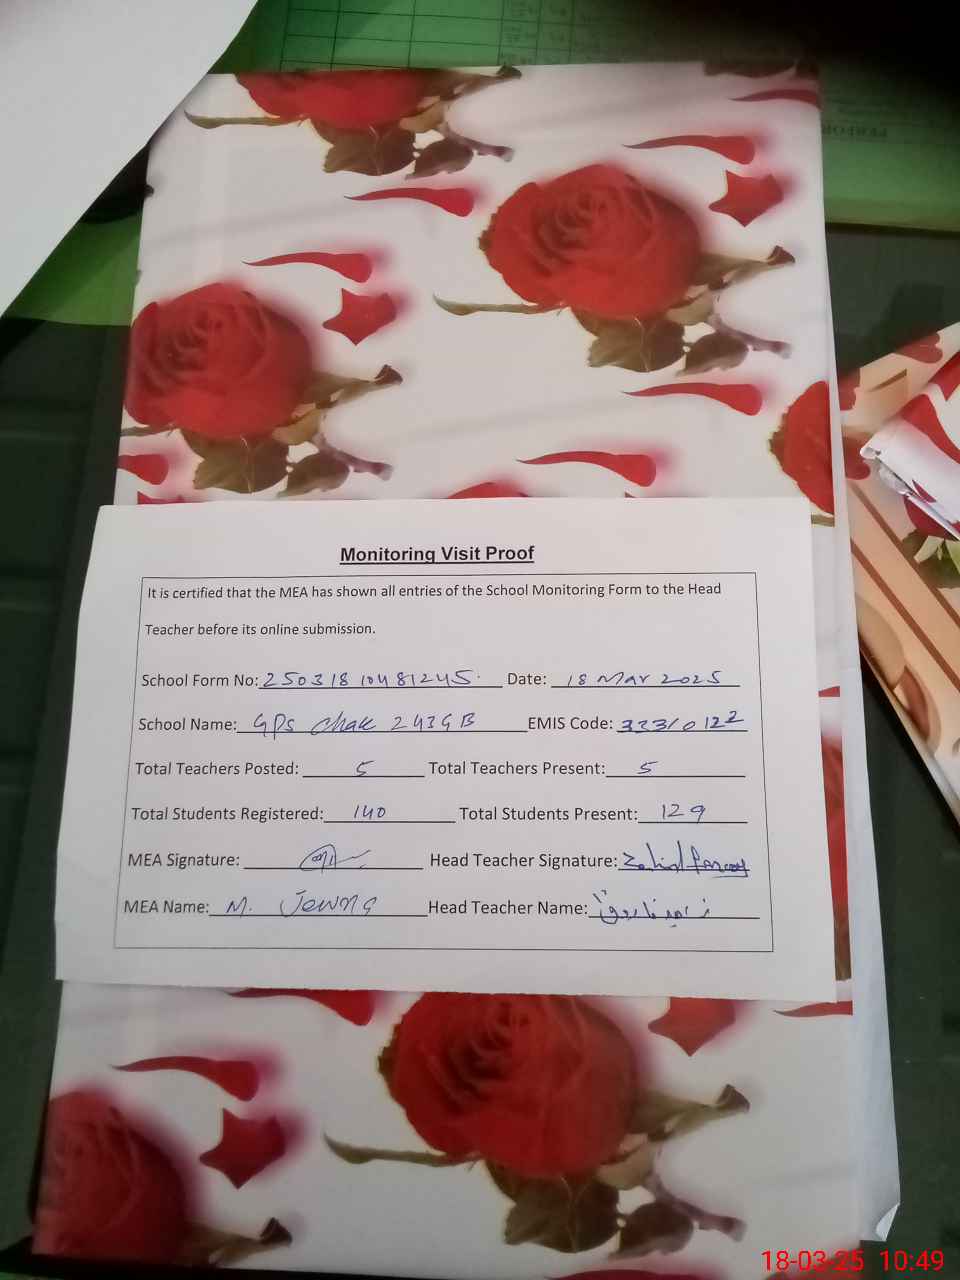 Monitoring Visit Proof
It is certified that the MEA has shown all entries of the School Monitoring Form to the Head
Teacher before its online submission.
School Form No: 25031810481245. Date: 18 Mar 2025
School Name: GPS Chak 243GB EMIS Code: 33310122
Total Teachers Posted: 5 Total Teachers Present: 5
Total Students Registered: 140 Total Students Present: 129
MEA Signature: Head Teacher Signature: Zahid Farooq
MEA Name: M. Head Teacher Name: زاہد فاروق
18-03-25 10:49